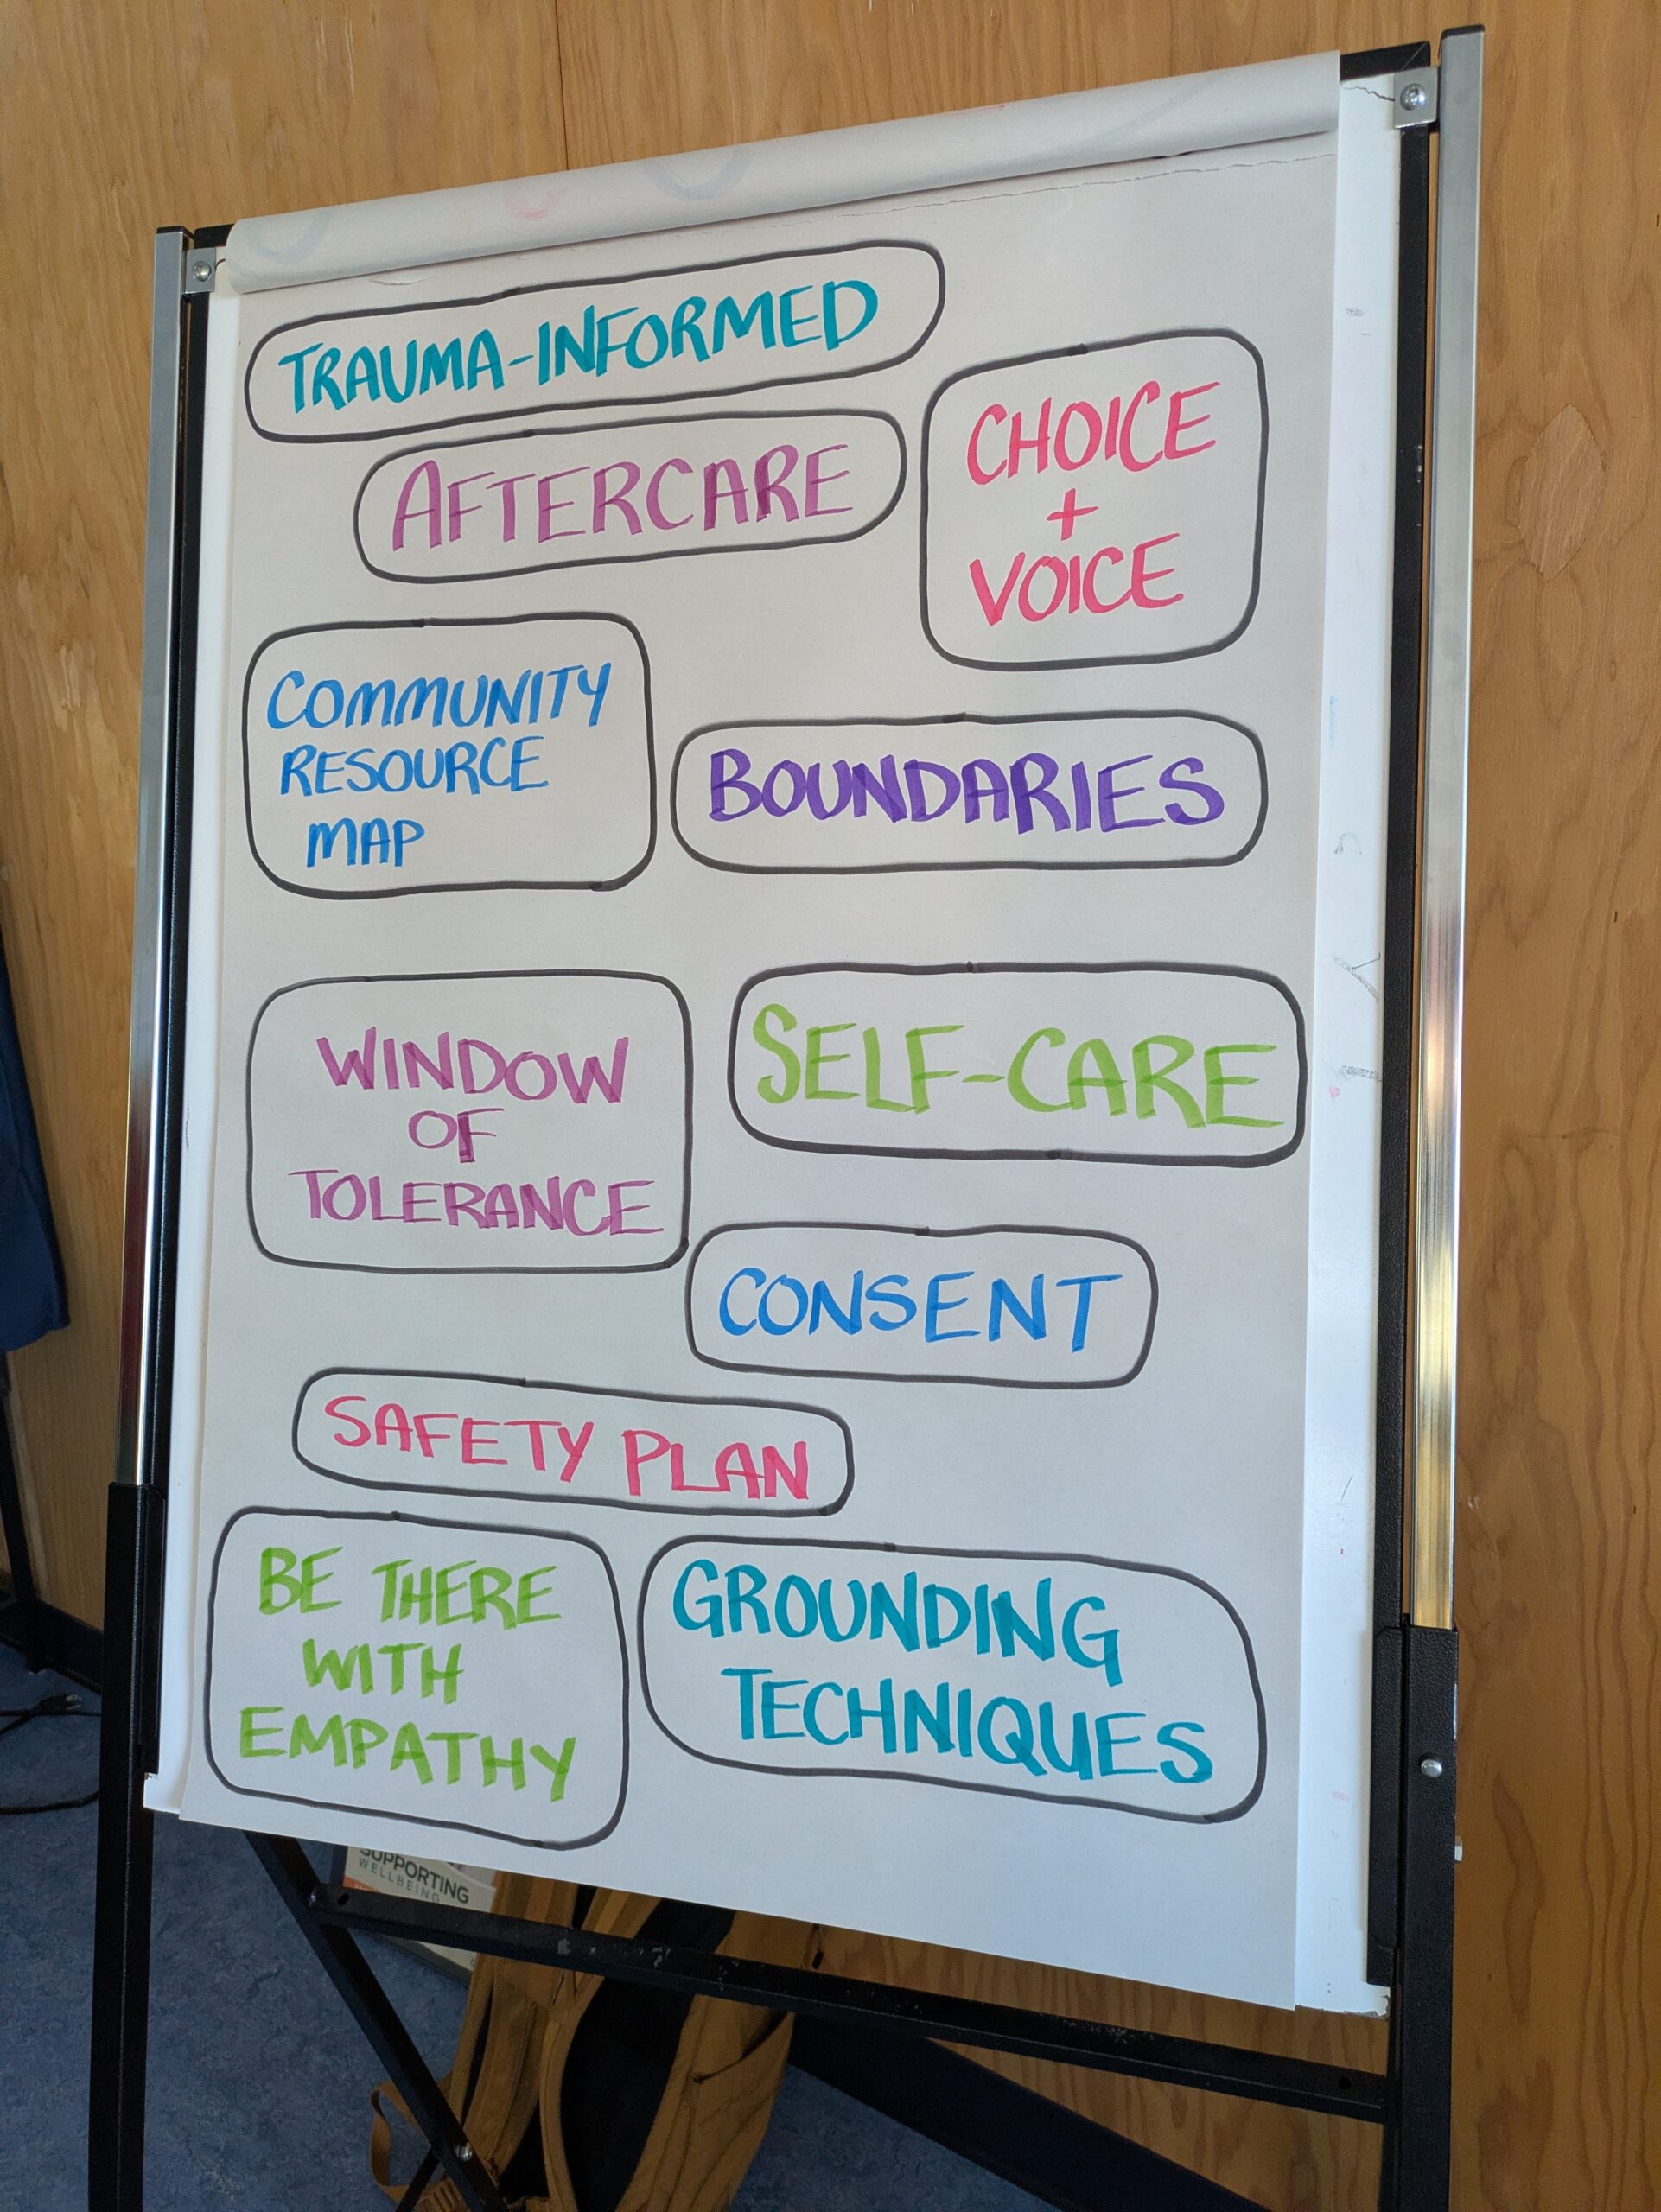 TRAUMA-INFORMED
AFTERCARE
CHOICE
+
VOICE
COMMUNITY
RESOURCE
MAP
BOUNDARIES
WINDOW
OF
TOLERANCE
SELF-CARE
CONSENT
SAFETY PLAN
BE THERE
WITH
EMPATHY
GROUNDING
TECHNIQUES
SUPPORTING
WELLBEING